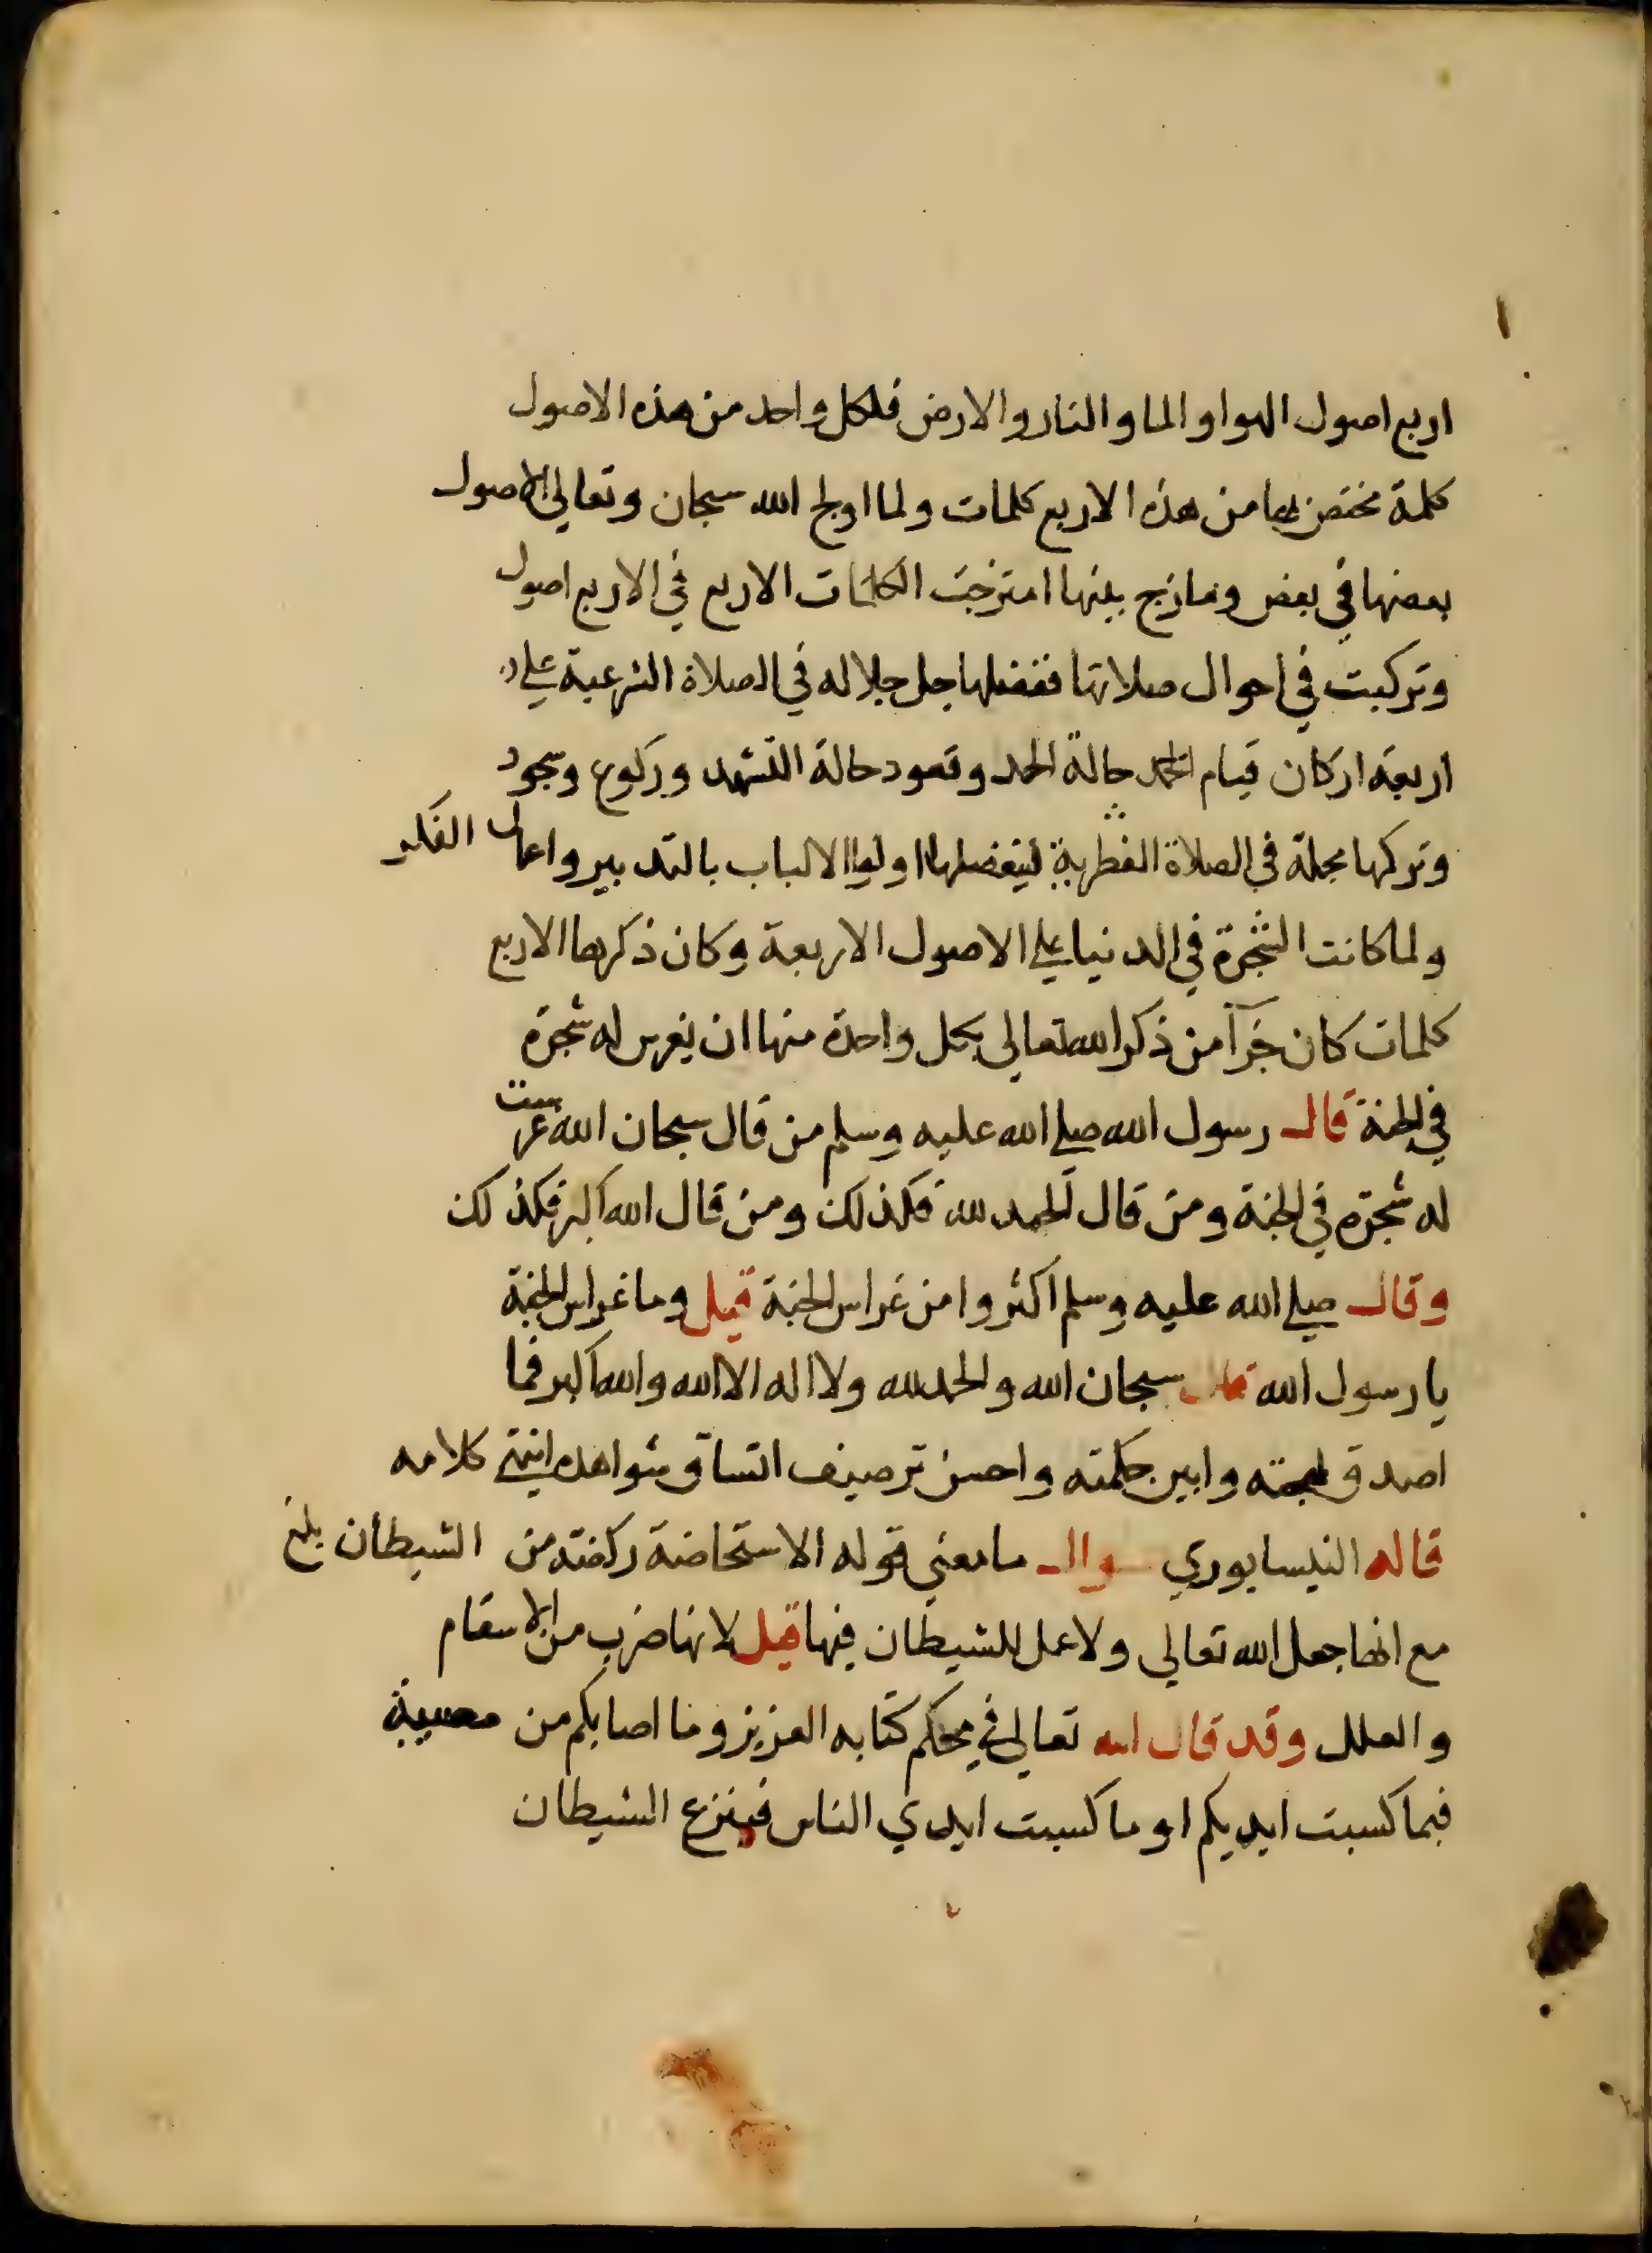 اربع اصول الهوا والما والنار والارض فلكل واحد من هذه الاصول
كلمة مختص بها من هذه الاربع كلمات ولما اولج الله سبحان وتعالى الاصول
بعضها في بعض ومازج بينها امتزجت الكلمات الاربع في الاربع اصول
وتركبت في احوال صلاتها ففضلها جل جلاله في الصلاة الشرعية علي
اربعة اركان قيام حالة الحمد وقعود حالة التشهد وركوع وسجود
وتركها مجملة في الصلاة الفطرية ليتفضلها اولوا الالباب بالتدبير واعمال الفكر
ولما كانت الشجرة في الدنيا علي الاصول الاربعة وكان ذكرها الاربع
كلمات كان جزآ من ذكر الله تعالى بكل واحدة منها ان يغرس له شجرة
في الجنة قال رسول الله صلى الله عليه وسلم من قال سبحان الله غرست
له شجرة في الجنة ومن قال الحمد لله فكذلك ومن قال الله اكبر فكذلك
وقال صلى الله عليه وسلم اكثروا من غراس الجنة قيل وما غراس الجنة
يا رسول الله قال سبحان الله والحمد لله ولا اله الا الله والله اكبر فما
اصدق لهجته وابين حكمته واحسن ترصيف اتساق شواهده انتهى كلامه
قاله النيسابوري سوال ما معني قوله الاستحاضة ركضة من الشيطان
مع انها جعل الله تعالى ولا عمل للشيطان فيها قيل لانها ضرب من الاسقام
والعلل وقد قال الله تعالى في محكم كتابه العزيز وما اصابكم من مصيبة
فبما كسبت ايديكم او ما كسبت ايدي الناس فينزع الشيطان